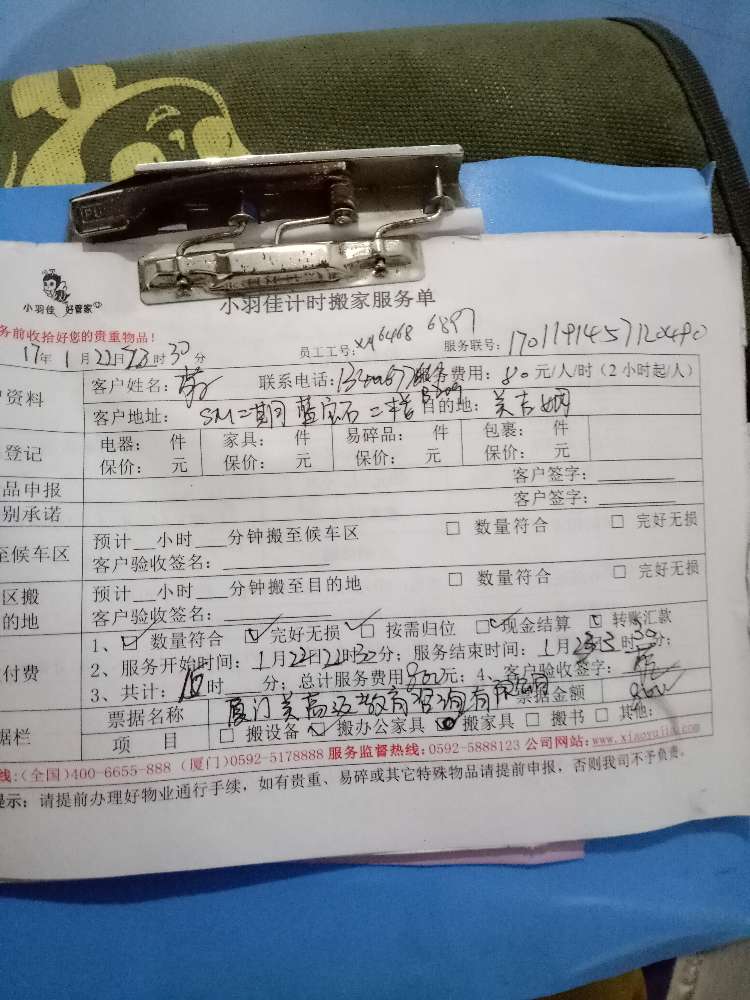 小羽佳 好管家
小羽佳计时搬家服务单
务前收拾好您的贵重物品！
17年1月22日 时30分 员工工号: 6468 6897 服务联号:
资料 客户姓名: 联系电话: 服务费用: 80元/人/时(2小时起/人)
客户地址: SM二期蓝宝石二楼 目的地:
登记 电器: 件 家具: 件 易碎品: 件 包裹: 件
保价: 元 保价: 元 保价: 元 保价: 元
品申报 客户签字:
别承诺 客户签字:
至候车区 预计__小时___分钟搬至候车区 □ 数量符合 □ 完好无损
客户验收签名:
区搬 预计__小时___分钟搬至目的地 □ 数量符合 □ 完好无损
的地 客户验收签名:
1、☑ 数量符合 ☑ 完好无损 □ 按需归位 □ 现金结算 □ 转账汇款
付费 2、服务开始时间: 1月22日22时30分; 服务结束时间: 1月23 时30分;
3、共计: 时___分; 总计服务费用 元; 4、客户验收签字:
据栏 票据名称 厦门美 教育咨询有限公司 票据金额
项 目 □ 搬设备 ☑ 搬办公家具 搬家具 □ 搬书 □ 其他:
线:(全国)400-6655-888 (厦门)0592-5178888 服务监督热线:0592-5888123 公司网站:www.xiaoyujia.com
提示: 请提前办理好物业通行手续, 如有贵重、易碎或其它特殊物品请提前申报, 否则我司不予负责。